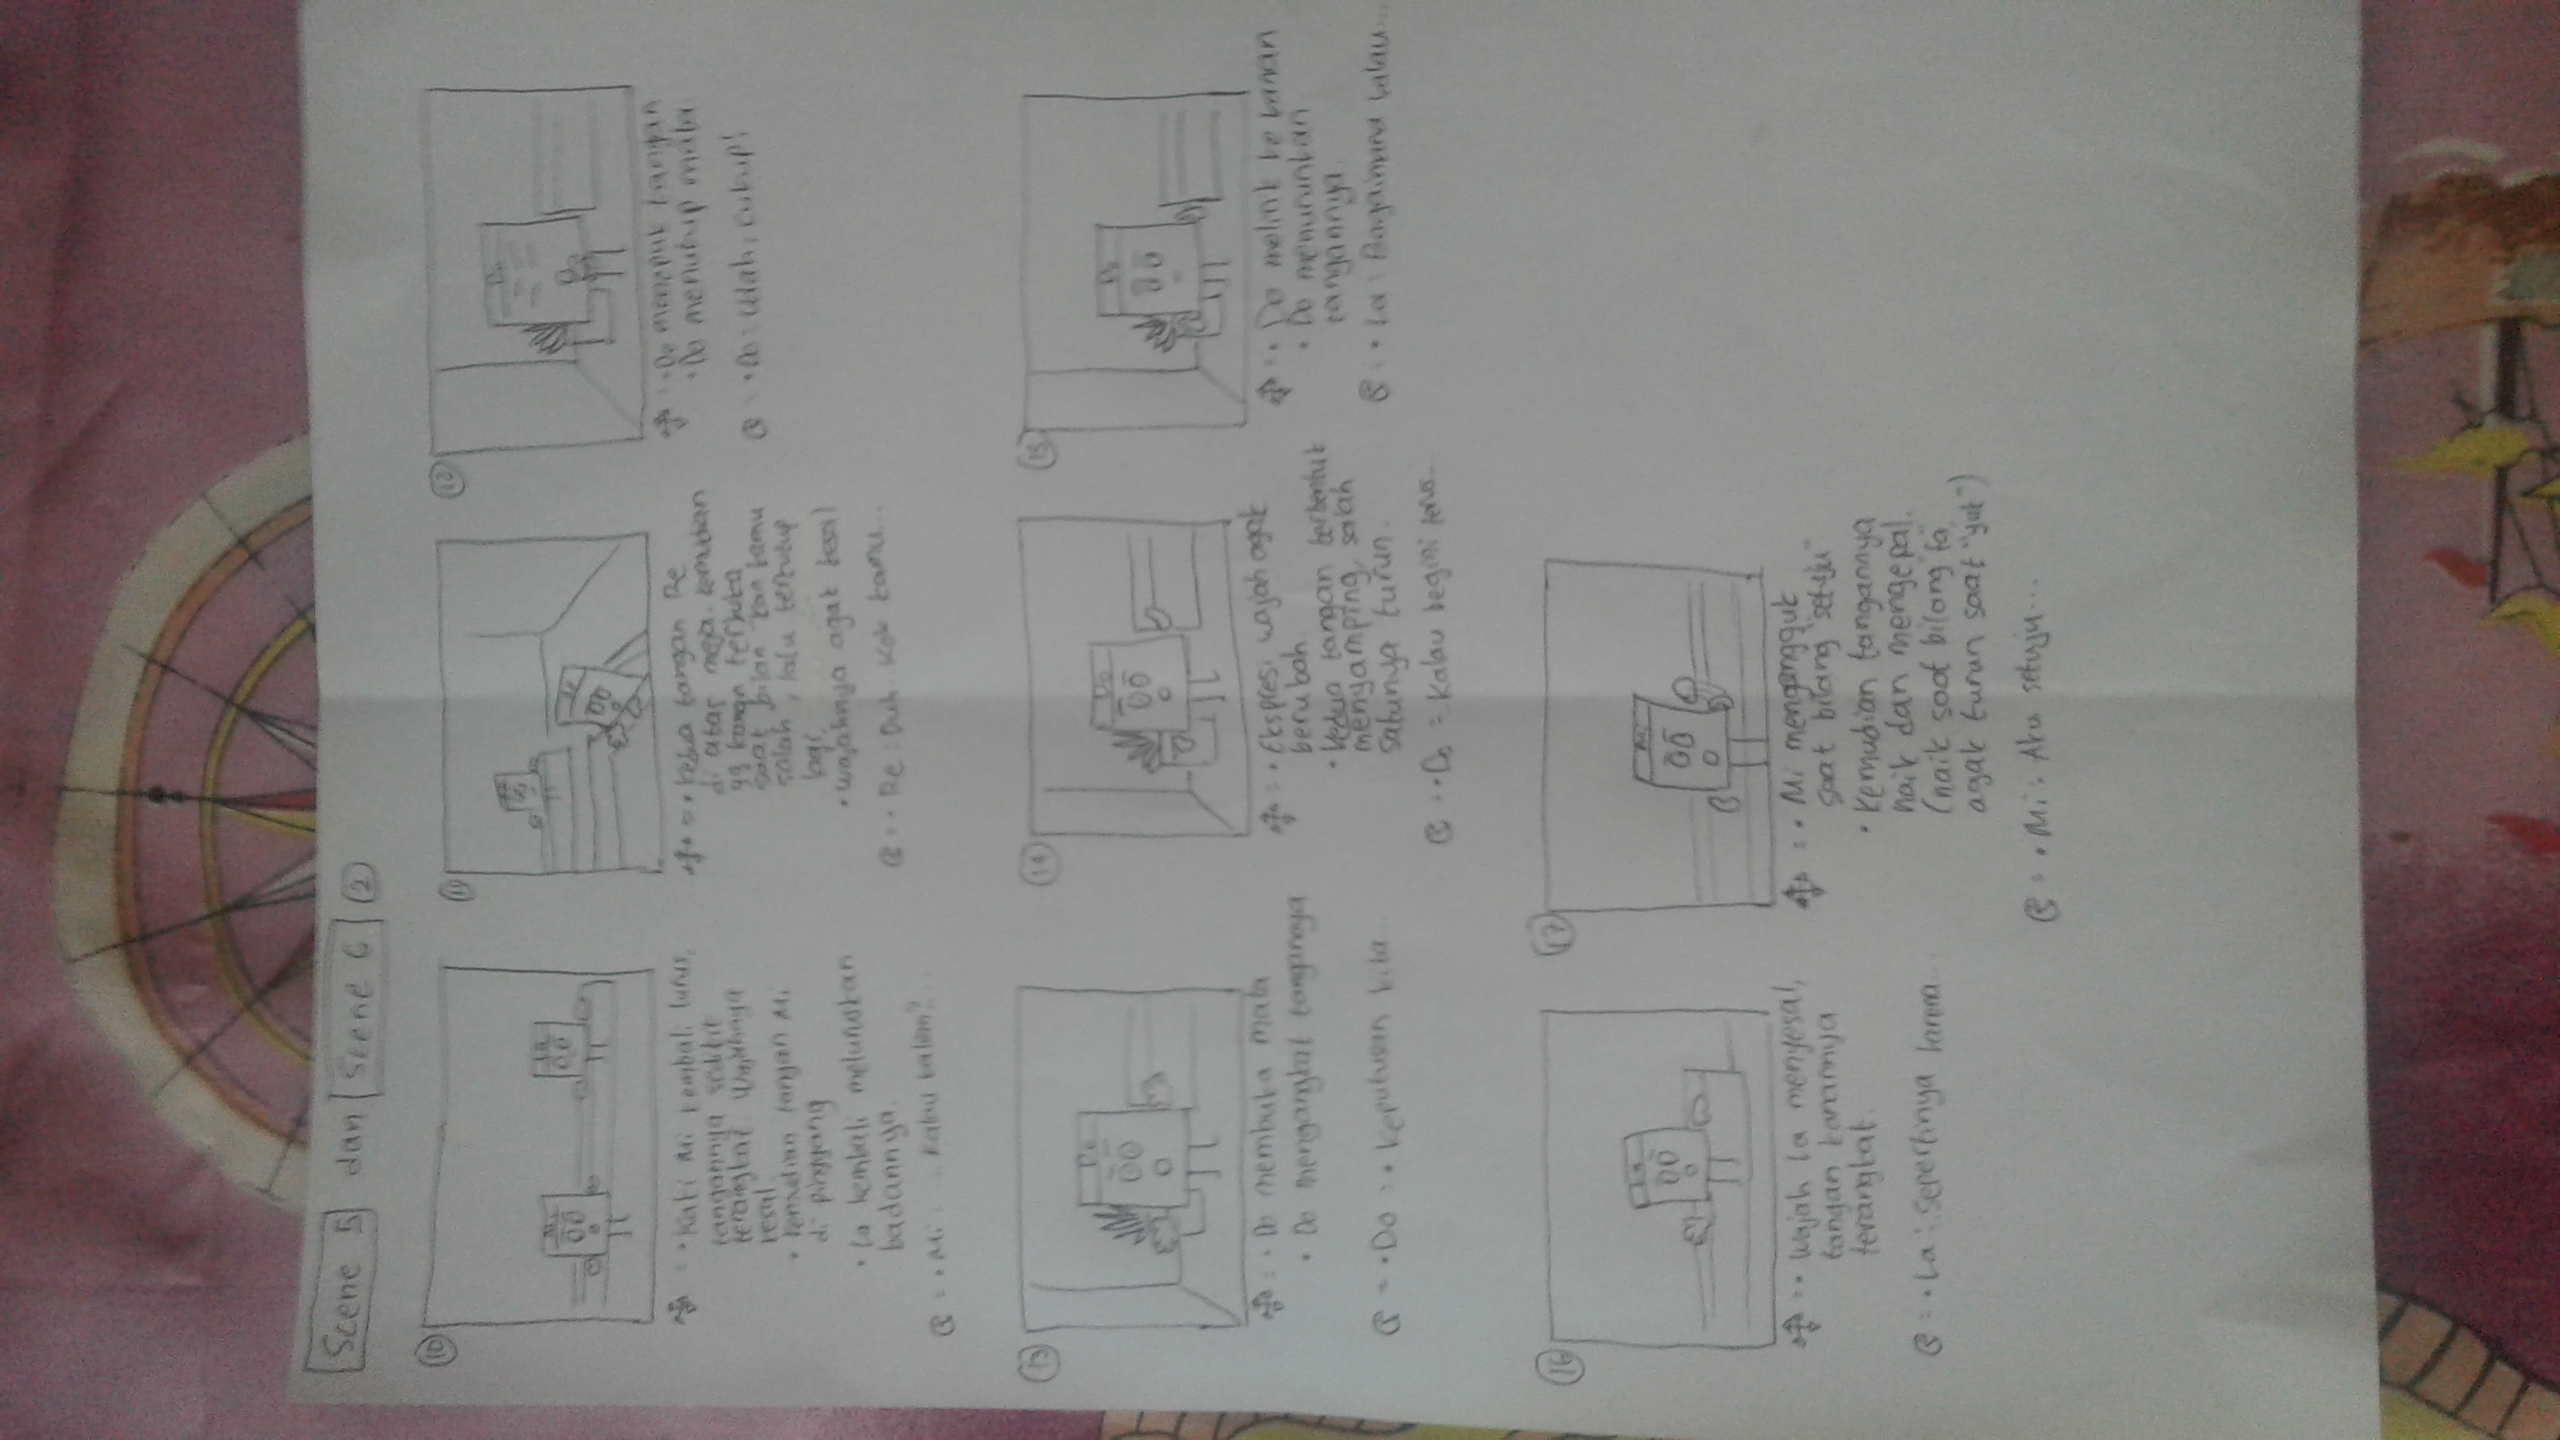 Scene 5 dan Scene 6 (2)
10
Mi
La
= • Kaki Mi kembali lurus,
tangannya sedikit
terangkat. Wajahnya
kesal.
• Kemudian tangan Mi
di pinggang
• La kembali meluruskan
badannya.
= • Mi : ... Kalau kalem? ...
11
Re
= • Kedua tangan Re
di atas meja. Kemudian
yg kanan terbuka
saat bilan "kan kamu
salah", lalu tertutup
lagi.
• Wajahnya agak kesal
= • Re : Duh. Kok kamu...
12
Do
= • Do menepuk tangan
• Do menutup mata
= • Do : Udah, cukup!
13
Do
= • Do membuka mata
• Do mengangkat tangannya
= • Do : • Keputusan kita...
14
Do
= • Ekspresi wajah agak
berubah
• Kedua tangan terbentuk
menyamping, salah
satunya turun.
= • Do = Kalau begini terus...
15
Do
= • Do melirik ke kanan
• Do menurunkan
tangannya.
= • La : Bagaimana kalau...
16
La
= • Wajah La menyesal,
tangan kanannya
terangkat.
= • La : Sepertinya karena...
17
Mi
= • Mi mengangguk
saat bilang "setuju"
• Kemudian tangannya
naik dan mengepal.
(naik saat bilang "fa",
agak turun saat "yuk")
= • Mi : Aku setuju...